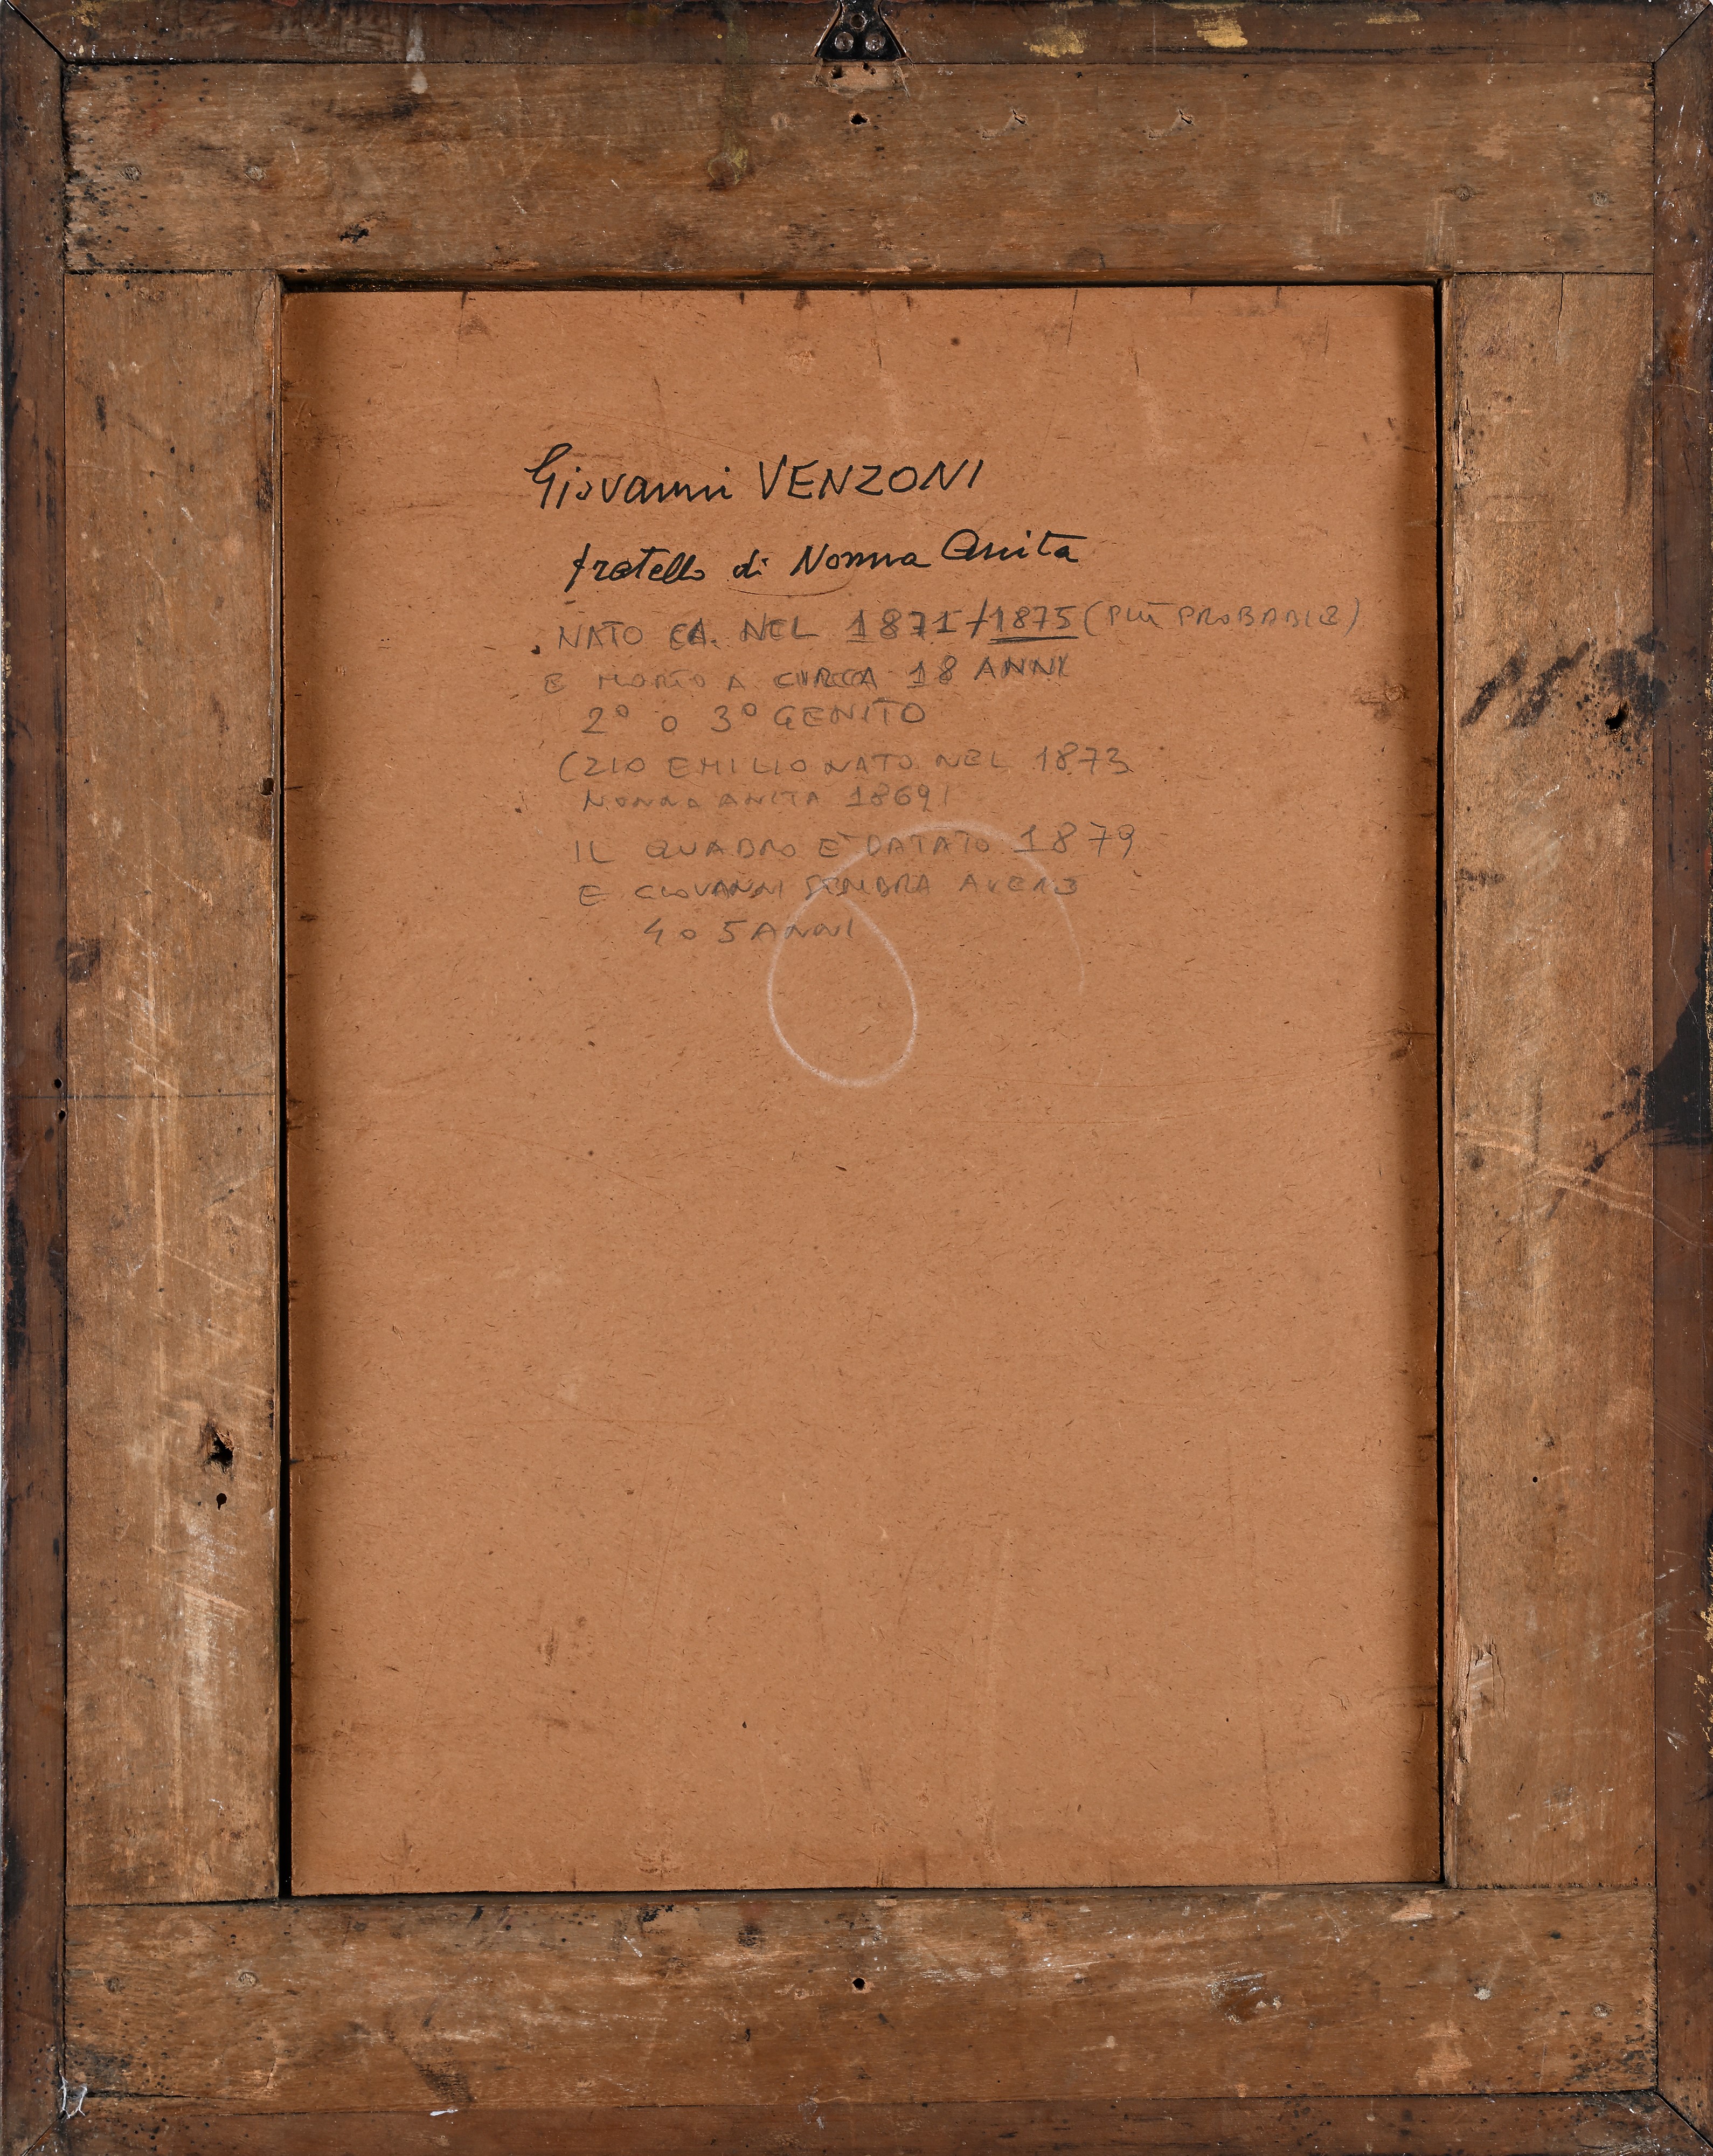 Giovanni VENZONI
fratello di Nonna Anita
NATO CA. NEL 1871/1875 (PIÙ PROBABILE)
E MORTO A CIRCA 18 ANNI
2° O 3° GENITO
(ZIO EMILIO NATO NEL 1873
NONNA ANITA 1869)
IL QUADRO E' DATATO 1879
E GIOVANNI SEMBRA AVERE
4 o 5 ANNI